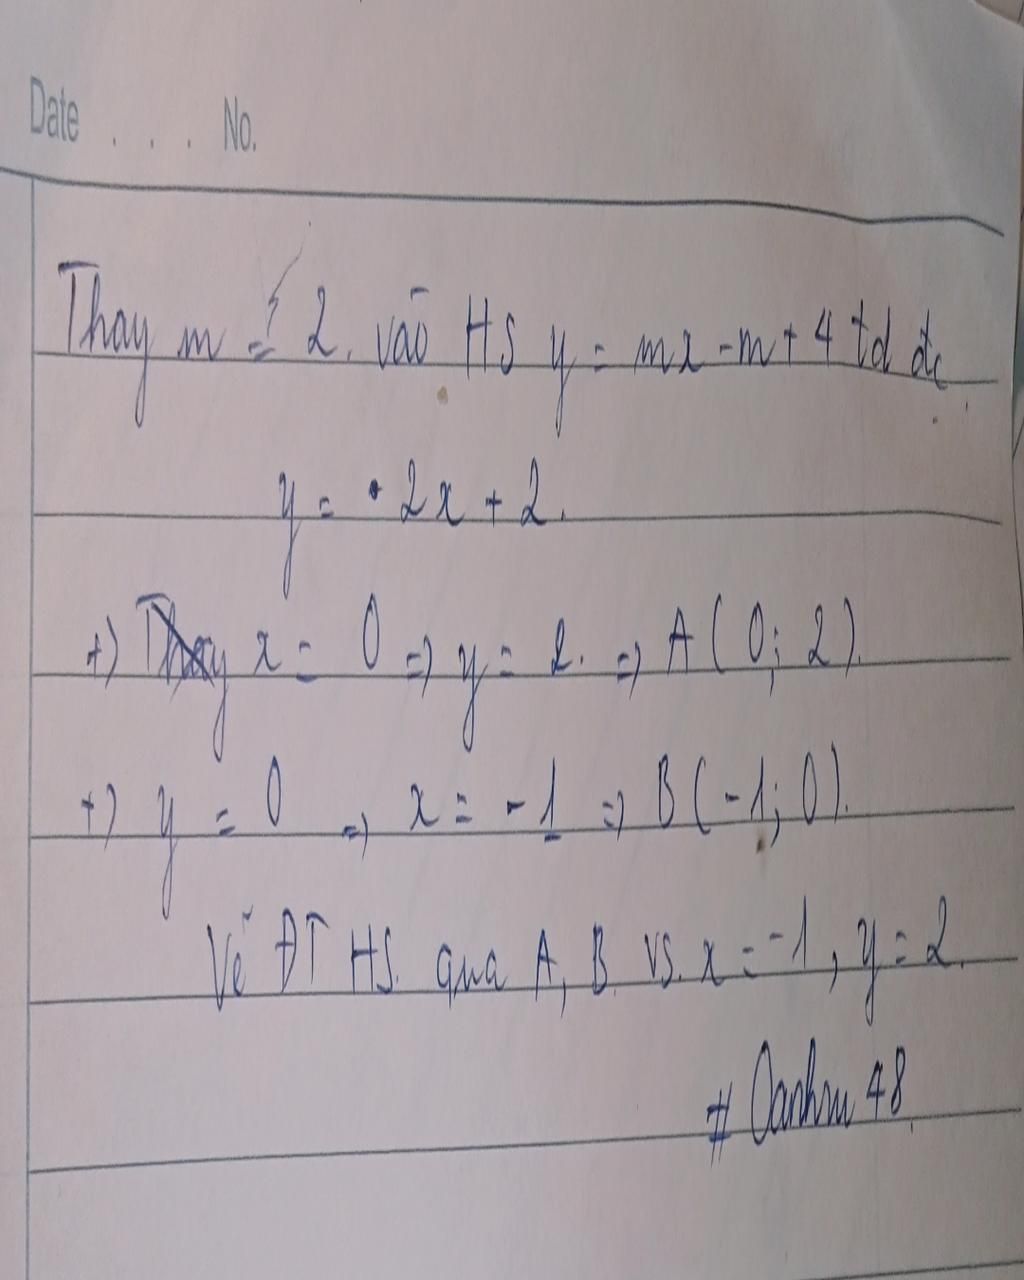 Date . . . No.
Thay m = 2. vào HS y = mx - m + 4 td đc
y = 2x + 2.
+) x = 0 => y = 2. => A ( 0; 2).
+) y = 0 => x = -1 => B (-1; 0).
Vẽ ĐT HS. qua A, B vs. x = -1, y = 2.
# Oanhm 48